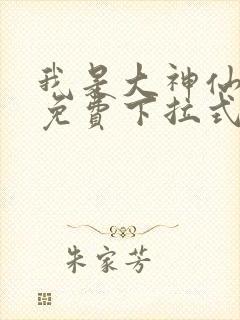 我是大神仙
免費下拉式
朱家芳